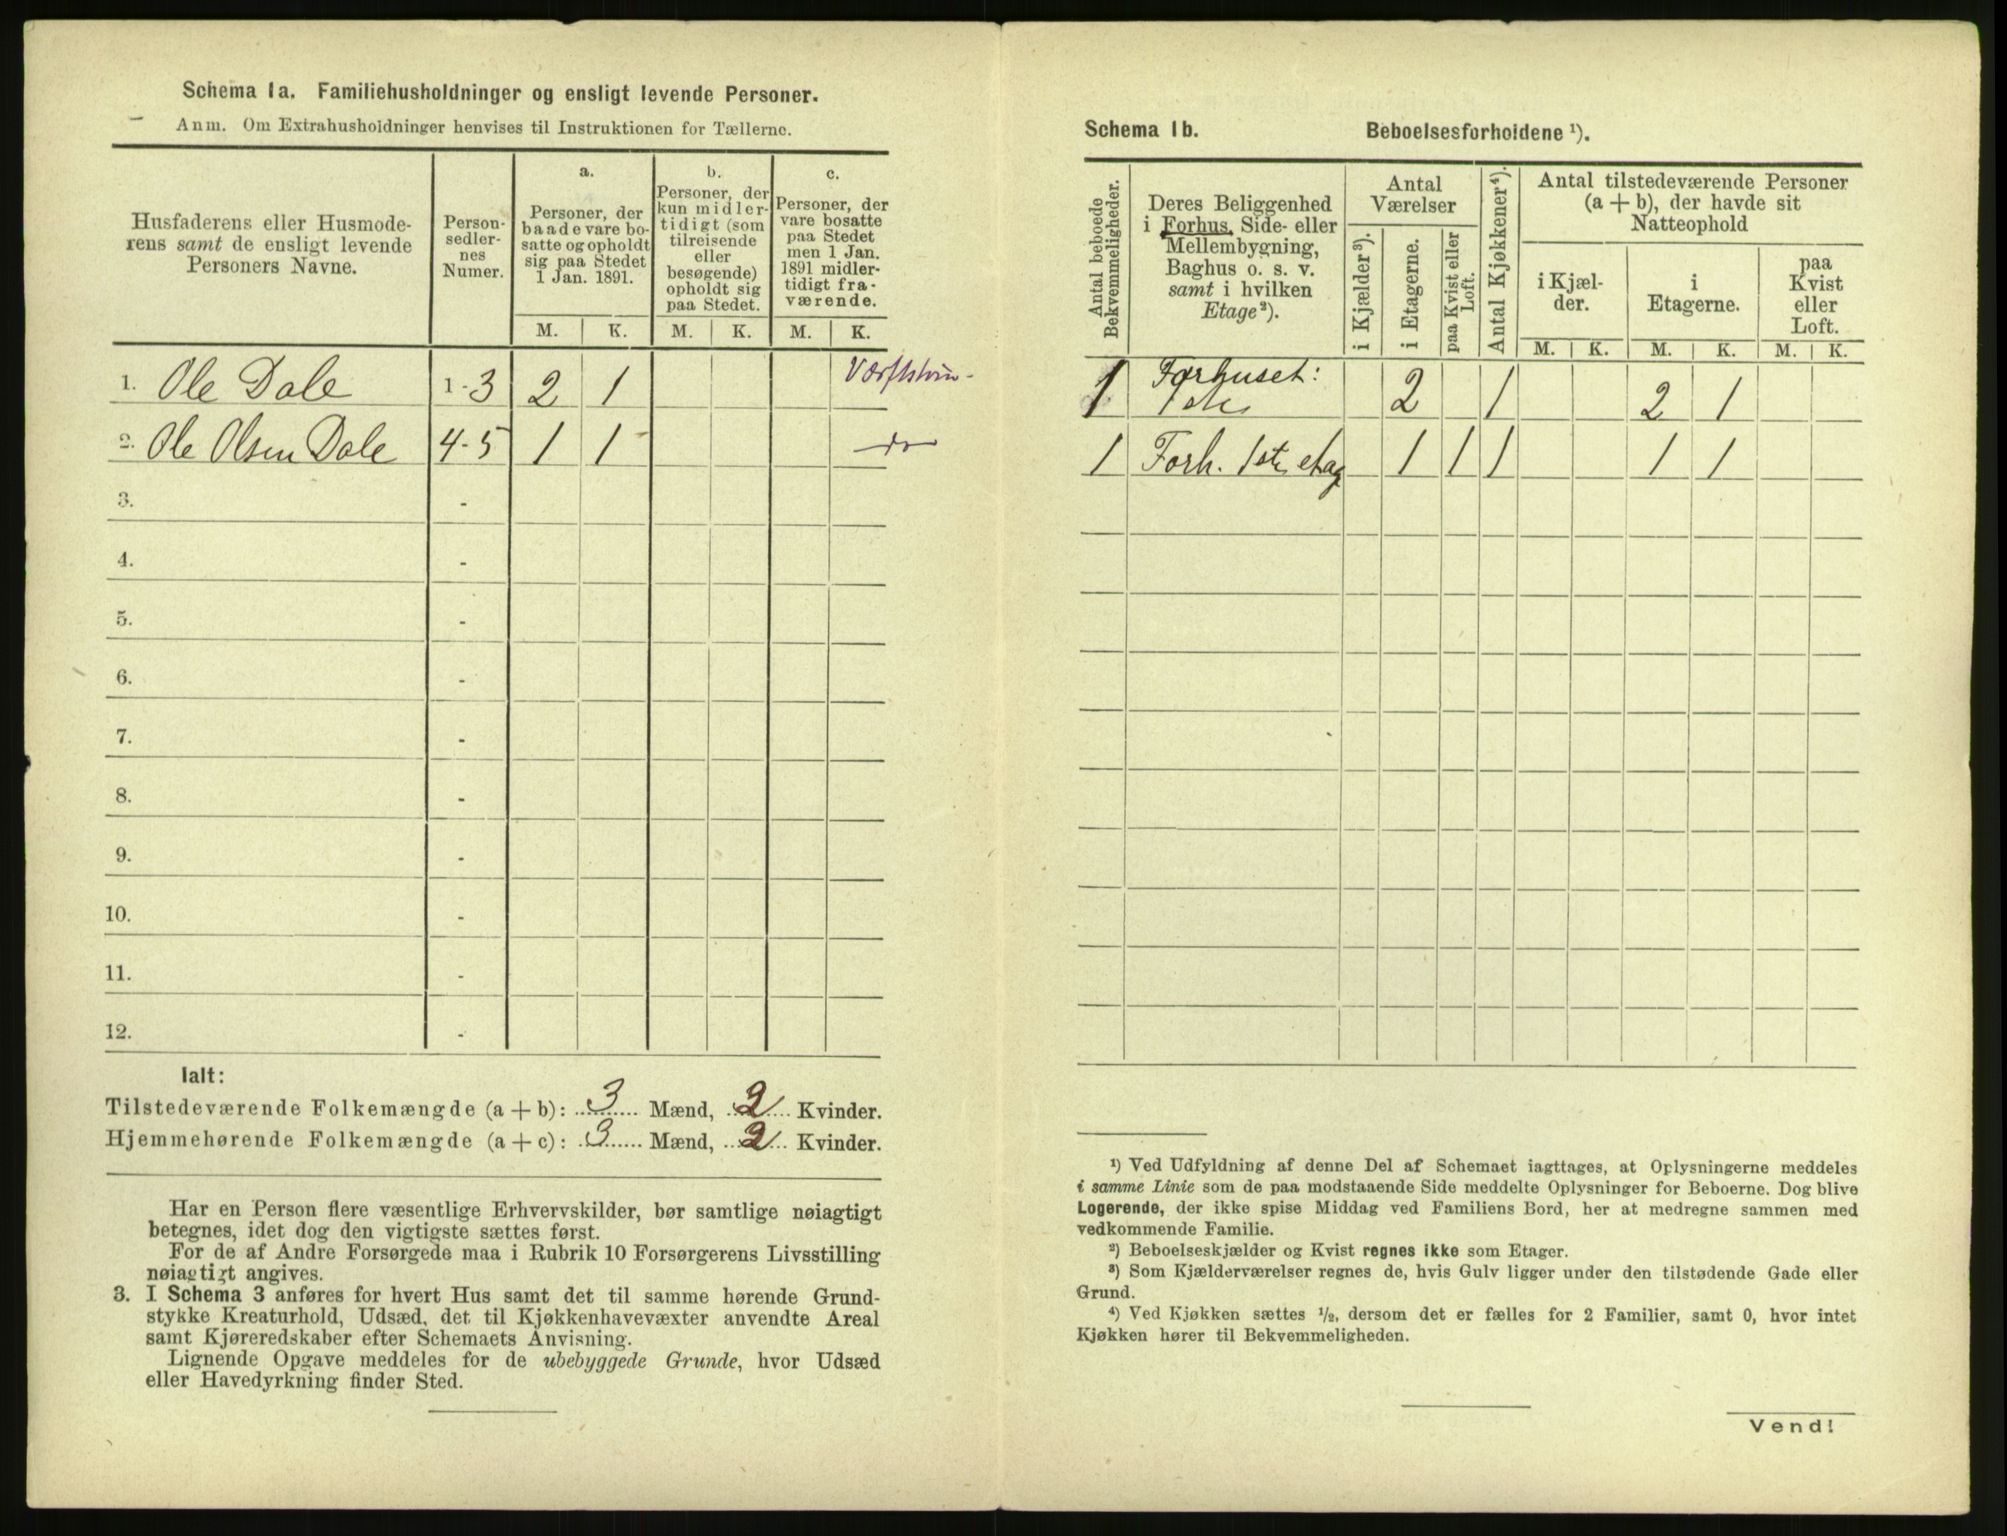 Schema 1a. Familiehusholdninger og ensligt levende Personer.
Anm. Om Extrahusholdninger henvises til Instruktionen for Tællerne.
Husfaderens eller Husmode-
rens samt de ensligt levende
Personers Navne.
Person-
sedler-
nes
Numer.
a.
Personer, der
baade vare bo-
satte og opholdt
sig paa Stedet
1 Jan. 1891.
b.
Personer, der
kun midler-
tidigt (som
tilreisende
eller
besøgende)
opholdt sig
paa Stedet.
c.
Personer, der
vare bosatte
paa Stedet
men 1 Jan.
1891 midler-
tidigt fra-
værende.
M. K. M. K. M. K.
1. Ole Dale 1-3 2 1
2. Ole Olsen Dale 4-5 1 1 do
3. -
4. -
5. -
6. -
7. -
8. -
9. -
10. -
11. -
12. -
Ialt:
Tilstedeværende Folkemængde (a + b): 3 Mænd, 2 Kvinder.
Hjemmehørende Folkemængde (a + c): 3 Mænd, 2 Kvinder.
Har en Person flere væsentlige Erhvervskilder, bør samtlige nøiagtigt
betegnes, idet dog den vigtigste sættes først.
For de af Andre Forsørgede maa i Rubrik 10 Forsørgerens Livsstilling
nøiagtigt angives.
3. I Schema 3 anføres for hvert Hus samt det til samme hørende Grund-
stykke Kreaturhold, Udsæd, det til Kjøkkenhavevæxter anvendte Areal
samt Kjøreredskaber efter Schemaets Anvisning.
Lignende Opgave meddeles for de ubebyggede Grunde, hvor Udsæd
eller Havedyrkning finder Sted.
Schema 1b. Beboelsesforholdene ¹).
Antal beboede
Bekvemmeligheder.
Deres Beliggenhed
i Forhus, Side- eller
Mellembygning,
Baghus o. s. v.
samt i hvilken
Etage²).
Antal
Værelser
i Kjælder³).
i Etagerne.
paa Kvist eller
Loft.
Antal Kjøkkener⁴).
Antal tilstedeværende Personer
(a + b), der havde sit
Natteophold
i Kjæl-
der.
i
Etagerne.
paa
Kvist
eller
Loft.
M. K. M. K. M. K.
1 Forhuset: 2 1 2 1
1 Forh. 1ste etag 1 1 1 1 1
¹) Ved Udfyldning af denne Del af Schemaet iagttages, at Oplysningerne meddeles
i samme Linie som de paa modstaaende Side meddelte Oplysninger for Beboerne. Dog blive
Logerende, der ikke spise Middag ved Familiens Bord, her at medregne sammen med
vedkommende Familie.
²) Beboelseskjælder og Kvist regnes ikke som Etager.
³) Som Kjælderværelser regnes de, hvis Gulv ligger under den tilstødende Gade eller
Grund.
⁴) Ved Kjøkken sættes ½, dersom det er fælles for 2 Familier, samt 0, hvor intet
Kjøkken hører til Bekvemmeligheden.
Vend!